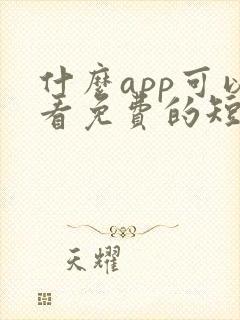 什麼app可以
看免費的短
天耀